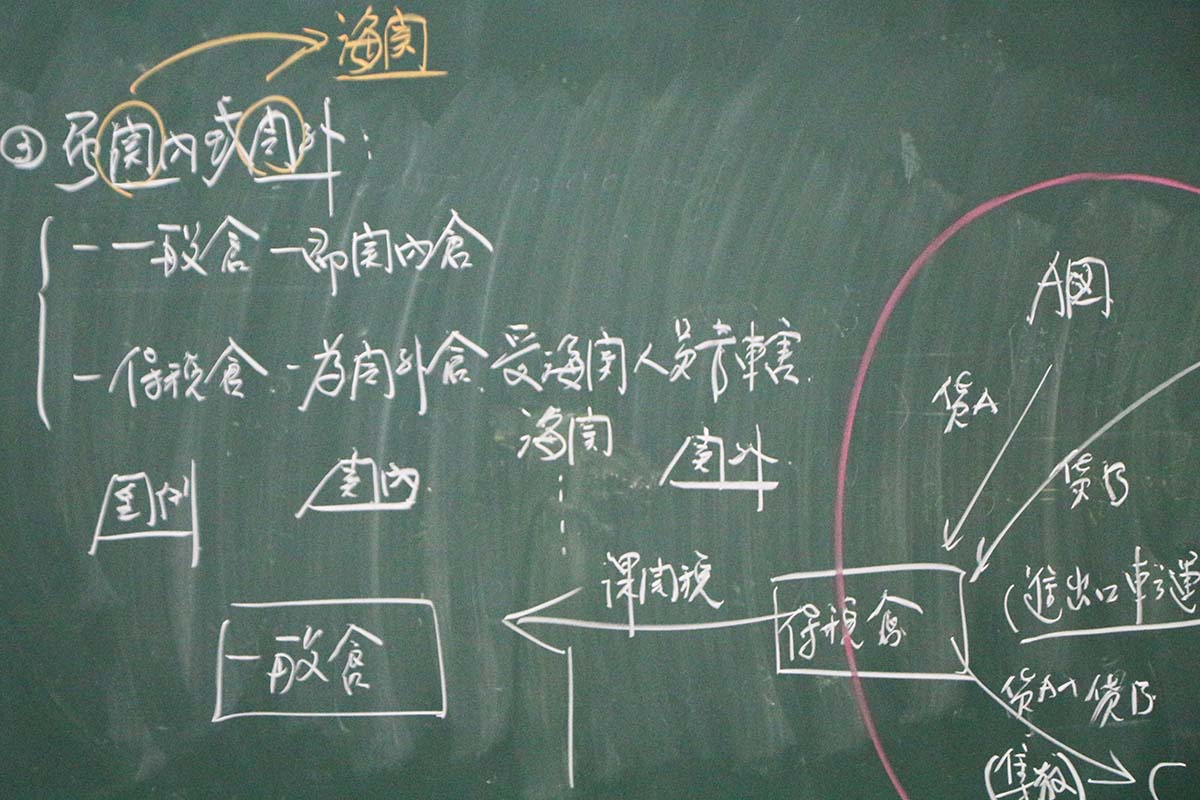 海関
③ 受関内或関外:
- 一般倉 - 即関内倉
- 保税倉 - 為関外倉 受海関人員管轄
海関
A国
貨A
貨B
関内
関外
課関税
一般倉
保税倉
(進出口轉運
貨A 貨B
(集散)
C